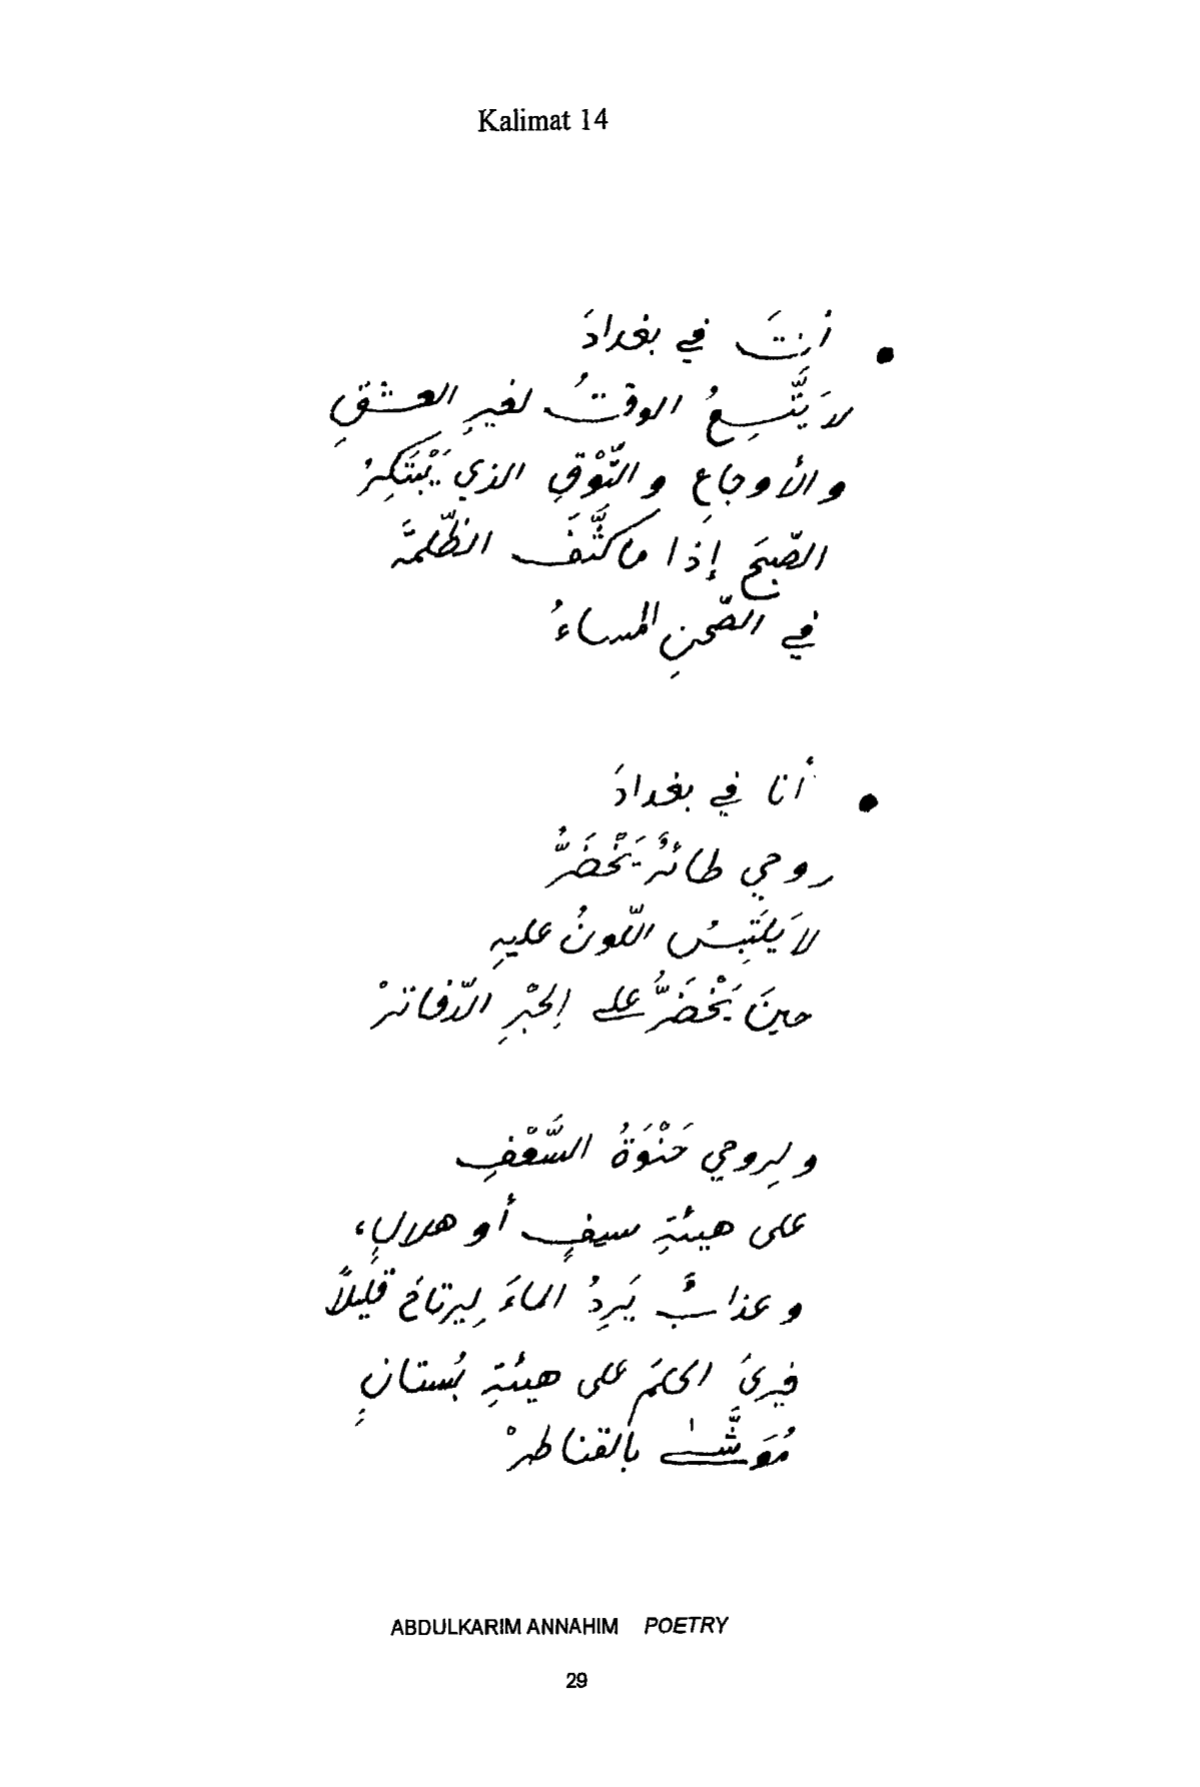 Kalimat 14
• أنتَ في بغدادَ
لا يَتَّسِعُ الوقتُ لغيرِ العشقِ
والأوجاعِ والتَّوْقِ الذي يَبْتَكِرُ
الصّبحَ إذا ما كثَّفَ الظّلمةَ
في الصّحنِ المساءُ
• أنا في بغدادَ
روحي طائرٌ يَخْضَرُّ
لا يَلتَبِسُ اللّونُ عليهِ
حينَ يَخْضَرُّ على الحِبْرِ الدّفاترْ
ولِروحي حَنْوَةُ السَّعْفِ
على هيئةِ سيفٍ أو هلالٍ،
وعذابٌ يَرِدُ الماءَ لِيرتاحَ قليلاً
فيرىَ الحكمَ على هيئةِ بُستانٍ
مُوَشَّىٰ بالقناطرْ
ABDULKARIM ANNAHIM POETRY
29